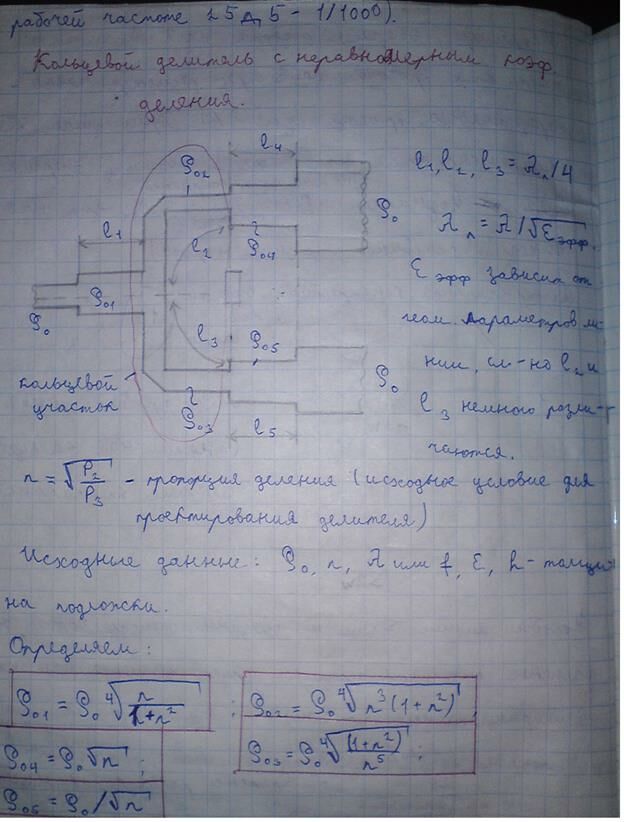 рабочей частоте 25 д, 5 - 1/1000).
Кольцевой делитель с неравномерным коэф.
деления.
l4
ρ02
l1, l2, l3 = λл/4
l1
l2
ρ0
ρ04
λл = λ/√εэфф.
ρ01
ρ0
l3
ρ05
ε эфф зависит от
геом. параметров ли-
нии, сл-но l2 и
l3 немного разли-
чаются.
ρ0
кольцевой
участок
ρ03
l5
n = √P2/P3 - пропорция деления (исходное условие для
проектирования делителя)
Исходные данные: ρ0, n, λ или f, ε, h - толщи
на подложки.
Определяем:
ρ01 = ρ0 ⁴√n/1+n² ; ρ02 = ρ0 ⁴√n³(1+n²)
ρ04 = ρ0√n ; ρ03 = ρ0 ⁴√(1+n²)/n⁵ ;
ρ05 = ρ0/√n